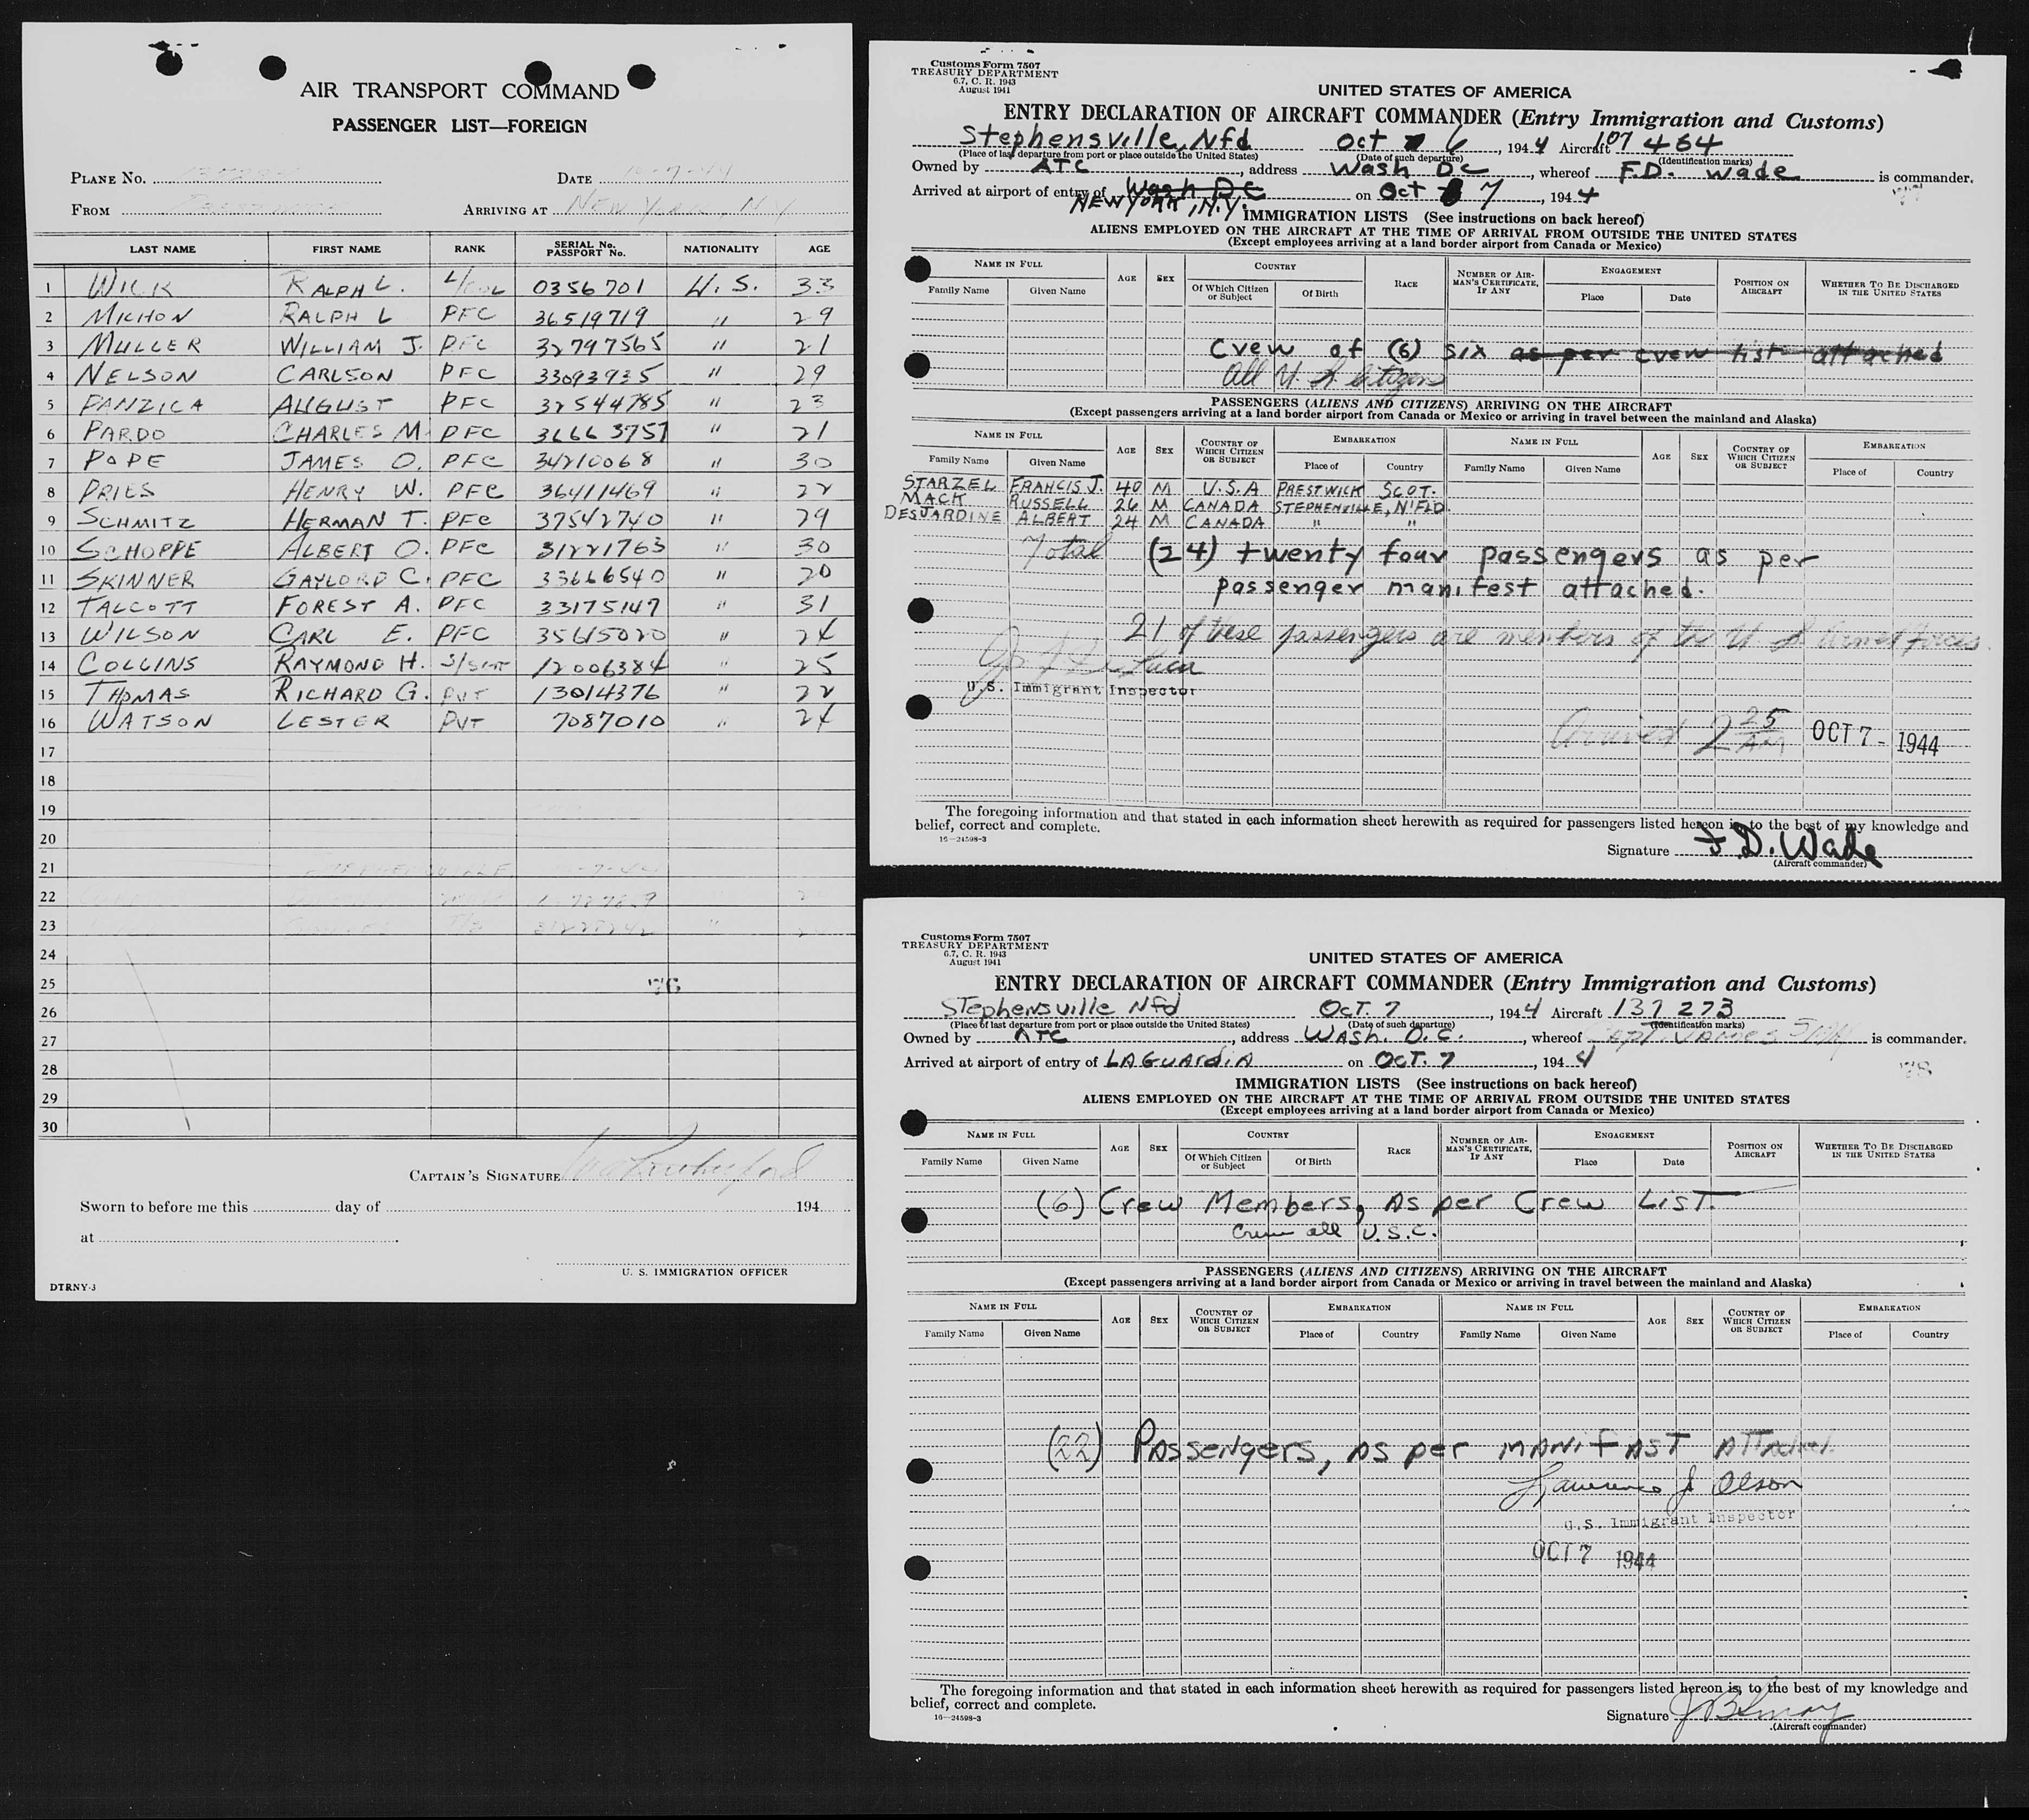 AIR TRANSPORT COMMAND
PASSENGER LIST—FOREIGN
PLANE No. DATE 10-7-44
FROM ARRIVING AT NEW YORK, N.Y
LAST NAME FIRST NAME RANK SERIAL No. PASSPORT No. NATIONALITY AGE
1 WICK RALPH L. L/COL 0356701 U.S. 33
2 MICHON RALPH L PFC 36519719 " 29
3 MULLER WILLIAM J. PFC 32797565 " 21
4 NELSON CARLSON PFC 33093935 " 29
5 PANZICA AUGUST PFC 32544785 " 23
6 PARDO CHARLES M. PFC 36663757 " 21
7 POPE JAMES O. PFC 34210068 " 30
8 PRIES HENRY W. PFC 36411469 " 22
9 SCHMITZ HERMAN T. PFC 37542740 " 29
10 SCHOPPE ALBERT O. PFC 31221763 " 30
11 SKINNER GAYLORD C. PFC 33666540 " 20
12 TALCOTT FOREST A. PFC 33175147 " 31
13 WILSON CARL E. PFC 35615020 " 24
14 COLLINS RAYMOND H. S/SGT 12006384 " 25
15 THOMAS RICHARD G. PVT 13014376 " 22
16 WATSON LESTER PVT 7087010 " 24
17
18
19
20
21
22
23
24
25 76
26
27
28
29
30
CAPTAIN'S SIGNATURE
Sworn to before me this day of 194
at
U. S. IMMIGRATION OFFICER
DTRNY-3
Customs Form 7507
TREASURY DEPARTMENT
6.7, C. R. 1943
August 1941
UNITED STATES OF AMERICA
ENTRY DECLARATION OF AIRCRAFT COMMANDER (Entry Immigration and Customs)
Stephensville, Nfd Oct 6, 1944 Aircraft 107 464
(Place of last departure from port or place outside the United States) (Date of such departure) (Identification marks)
Owned by ATC, address Wash DC, whereof F.D. Wade is commander.
Arrived at airport of entry of Wash DC on Oct 7, 1944
NEW YORK, N.Y.
77
IMMIGRATION LISTS (See instructions on back hereof)
ALIENS EMPLOYED ON THE AIRCRAFT AT THE TIME OF ARRIVAL FROM OUTSIDE THE UNITED STATES
(Except employees arriving at a land border airport from Canada or Mexico)
NAME IN FULL AGE SEX COUNTRY RACE NUMBER OF AIRMAN'S CERTIFICATE, IF ANY ENGAGEMENT POSITION ON AIRCRAFT WHETHER TO BE DISCHARGED IN THE UNITED STATES
Family Name Given Name Of Which Citizen or Subject Of Birth Place Date
Crew of (6) six as per crew list attached
All U. S. Citizen
PASSENGERS (ALIENS AND CITIZENS) ARRIVING ON THE AIRCRAFT
(Except passengers arriving at a land border airport from Canada or Mexico or arriving in travel between the mainland and Alaska)
NAME IN FULL AGE SEX COUNTRY OF WHICH CITIZEN OR SUBJECT EMBARKATION NAME IN FULL AGE SEX COUNTRY OF WHICH CITIZEN OR SUBJECT EMBARKATION
Family Name Given Name Place of Country Family Name Given Name Place of Country
STARZEL FRANCIS J. 40 M U.S.A PRESTWICK SCOT.
MACK RUSSELL 26 M CANADA STEPHENVILLE, N'FLD.
DESJARDINE ALBERT 24 M CANADA " "
Total (24) twenty four passengers as per
passenger manifest attached.
21 of these passengers are members of the U. S. Armed Forces.
U.S. Immigrant Inspector
Arrived 2 25 AM OCT 7 - 1944
The foregoing information and that stated in each information sheet herewith as required for passengers listed hereon is, to the best of my knowledge and
belief, correct and complete.
16—24598-3
Signature F D. Wade
(Aircraft commander)
Customs Form 7507
TREASURY DEPARTMENT
6.7, C. R. 1943
August 1941
UNITED STATES OF AMERICA
ENTRY DECLARATION OF AIRCRAFT COMMANDER (Entry Immigration and Customs)
Stephensville Nfd Oct. 7, 1944 Aircraft 137 273
(Place of last departure from port or place outside the United States) (Date of such departure) (Identification marks)
Owned by ATC, address Wash. D.C., whereof Capt. James is commander.
Arrived at airport of entry of LAGUARDIA on OCT. 7, 1944
78
IMMIGRATION LISTS (See instructions on back hereof)
ALIENS EMPLOYED ON THE AIRCRAFT AT THE TIME OF ARRIVAL FROM OUTSIDE THE UNITED STATES
(Except employees arriving at a land border airport from Canada or Mexico)
NAME IN FULL AGE SEX COUNTRY RACE NUMBER OF AIRMAN'S CERTIFICATE, IF ANY ENGAGEMENT POSITION ON AIRCRAFT WHETHER TO BE DISCHARGED IN THE UNITED STATES
Family Name Given Name Of Which Citizen or Subject Of Birth Place Date
(6) Crew Members, As per Crew List.
Crew all U.S.C.
PASSENGERS (ALIENS AND CITIZENS) ARRIVING ON THE AIRCRAFT
(Except passengers arriving at a land border airport from Canada or Mexico or arriving in travel between the mainland and Alaska)
NAME IN FULL AGE SEX COUNTRY OF WHICH CITIZEN OR SUBJECT EMBARKATION NAME IN FULL AGE SEX COUNTRY OF WHICH CITIZEN OR SUBJECT EMBARKATION
Family Name Given Name Place of Country Family Name Given Name Place of Country
(22) Passengers, as per manifast
Lawrence J Olson
U.S. Immigrant Inspector
OCT 7 1944
The foregoing information and that stated in each information sheet herewith as required for passengers listed hereon is, to the best of my knowledge and
belief, correct and complete.
16—24598-3
Signature
(Aircraft commander)